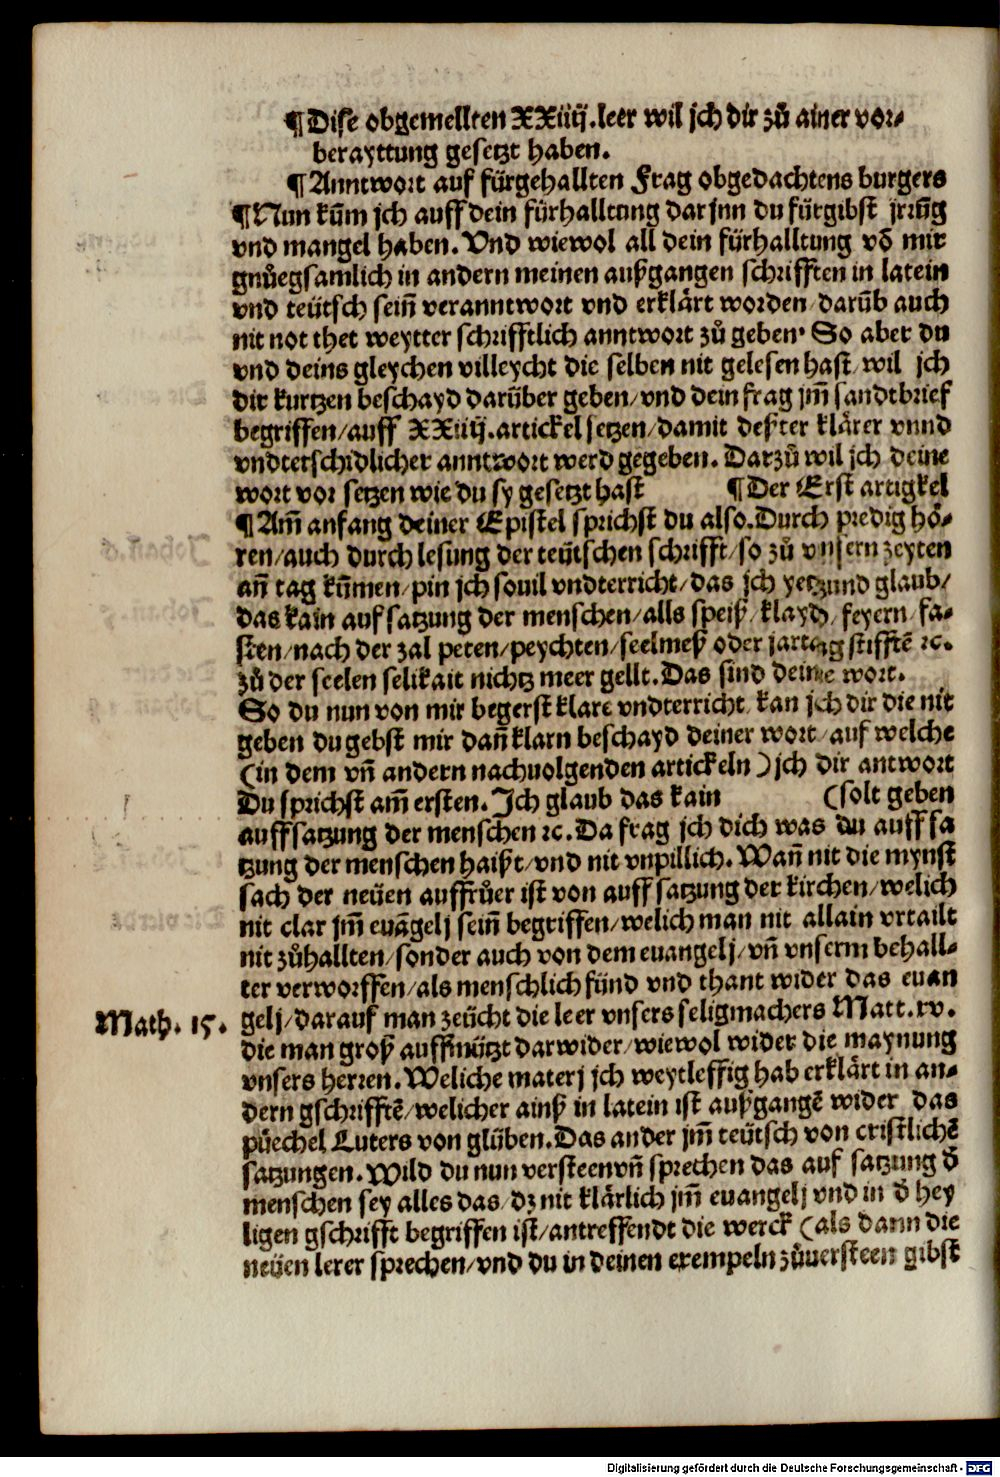 ¶Dise obgemellten XXiiij.leer wil jch dir zů ainer vor-
berayttung gesetzt haben.
¶Anntwort auf fürgehallten Frag obgedachtens burgers
¶Nun kum̄ jch auff dein fürhalltung darjnn du fürgibst jrrūg
vnd mangel haben. Vnd wiewol all dein fürhalltung vō mir
gnůegsamlich in andern meinen außgangen schrifften in latein
vnd teütsch sein̄ veranntwort vnd erklärt worden/darūb auch
nit not thet weytter schrifftlich anntwort zů geben. So aber du
vnd deins gleychen villeycht die selben nit gelesen hast/wil jch
dir kurtzen beschayd darüber geben/vnd dein frag jm̄ sandtbrief
begriffen/auff XXiiij.artickel setzen/damit dester klärer vnnd
vndterschidlicher anntwort werd gegeben. Darzů wil jch deine
wort vor setzen wie du sy gesetzt hast ¶Der Erst artigkel
¶Am̄ anfang deiner Epistel sprichst du also.Durch predig hö-
ren/auch durch lesung der teütschen schrifft/so zů vnsern zeyten
an̄ tag kum̄en/pin jch souil vndterricht/das jch yetzund glaub/
das kain aufsatzung der menschen/alls speiß/klayd/feyern/fa-
sten/nach der zal peten/peychten/seelmeß oder jartag stifftē ꝛc.
zů der seelen selikait nichtz meer gellt.Das sind deine wort.
So du nun von mir begerst klare vndterricht/kan jch dir die nit
geben du gebst mir dan̄ klarn beschayd deiner wort/auf welche
(in dem vn̄ andern nachuolgenden artickeln) jch dir antwort
Du sprichst am̄ ersten. Ich glaub das kain (solt geben
auffsatzung der menschen ꝛc.Da frag jch dich was du auffsa
tzung der menschen haißt/vnd nit vnpillich.Wan̄ nit die mynst
sach der neüen auffrůer ist von auffsatzung der kirchen/welich
nit clar jm̄ euāgelj sein̄ begriffen/welich man nit allain vrtailt
nit zůhallten/sonder auch von dem euangelj/vn̄ vnserm behall-
ter verworffen/als menschlich fünd vnd thant wider das euan
Math. 15.
gelj/darauf man zeücht die leer vnsers seligmachers Matt.xv.
die man groß auffmützt darwider/wiewol wider die maynung
vnsers herren.Weliche materj jch weytleffig hab erklärt in an-
dern gschrifftē/welicher ainß in latein ist außgangē wider das
püechel Luters von glüben.Das ander jm̄ teütsch von cristlichē
satzungen.Wild du nun versteen vn̄ sprechen das auf satzung d̄
menschen sey alles das/dz nit klärlich jm̄ euangelj vnd in d̄ hey
ligen gschrifft begriffen ist/antreffendt die werck (als dann die
neüen lerer sprechen/vnd du in deinen exempeln zůuersteen gibst
Digitalisierung gefördert durch die Deutsche Forschungsgemeinschaft - DFG